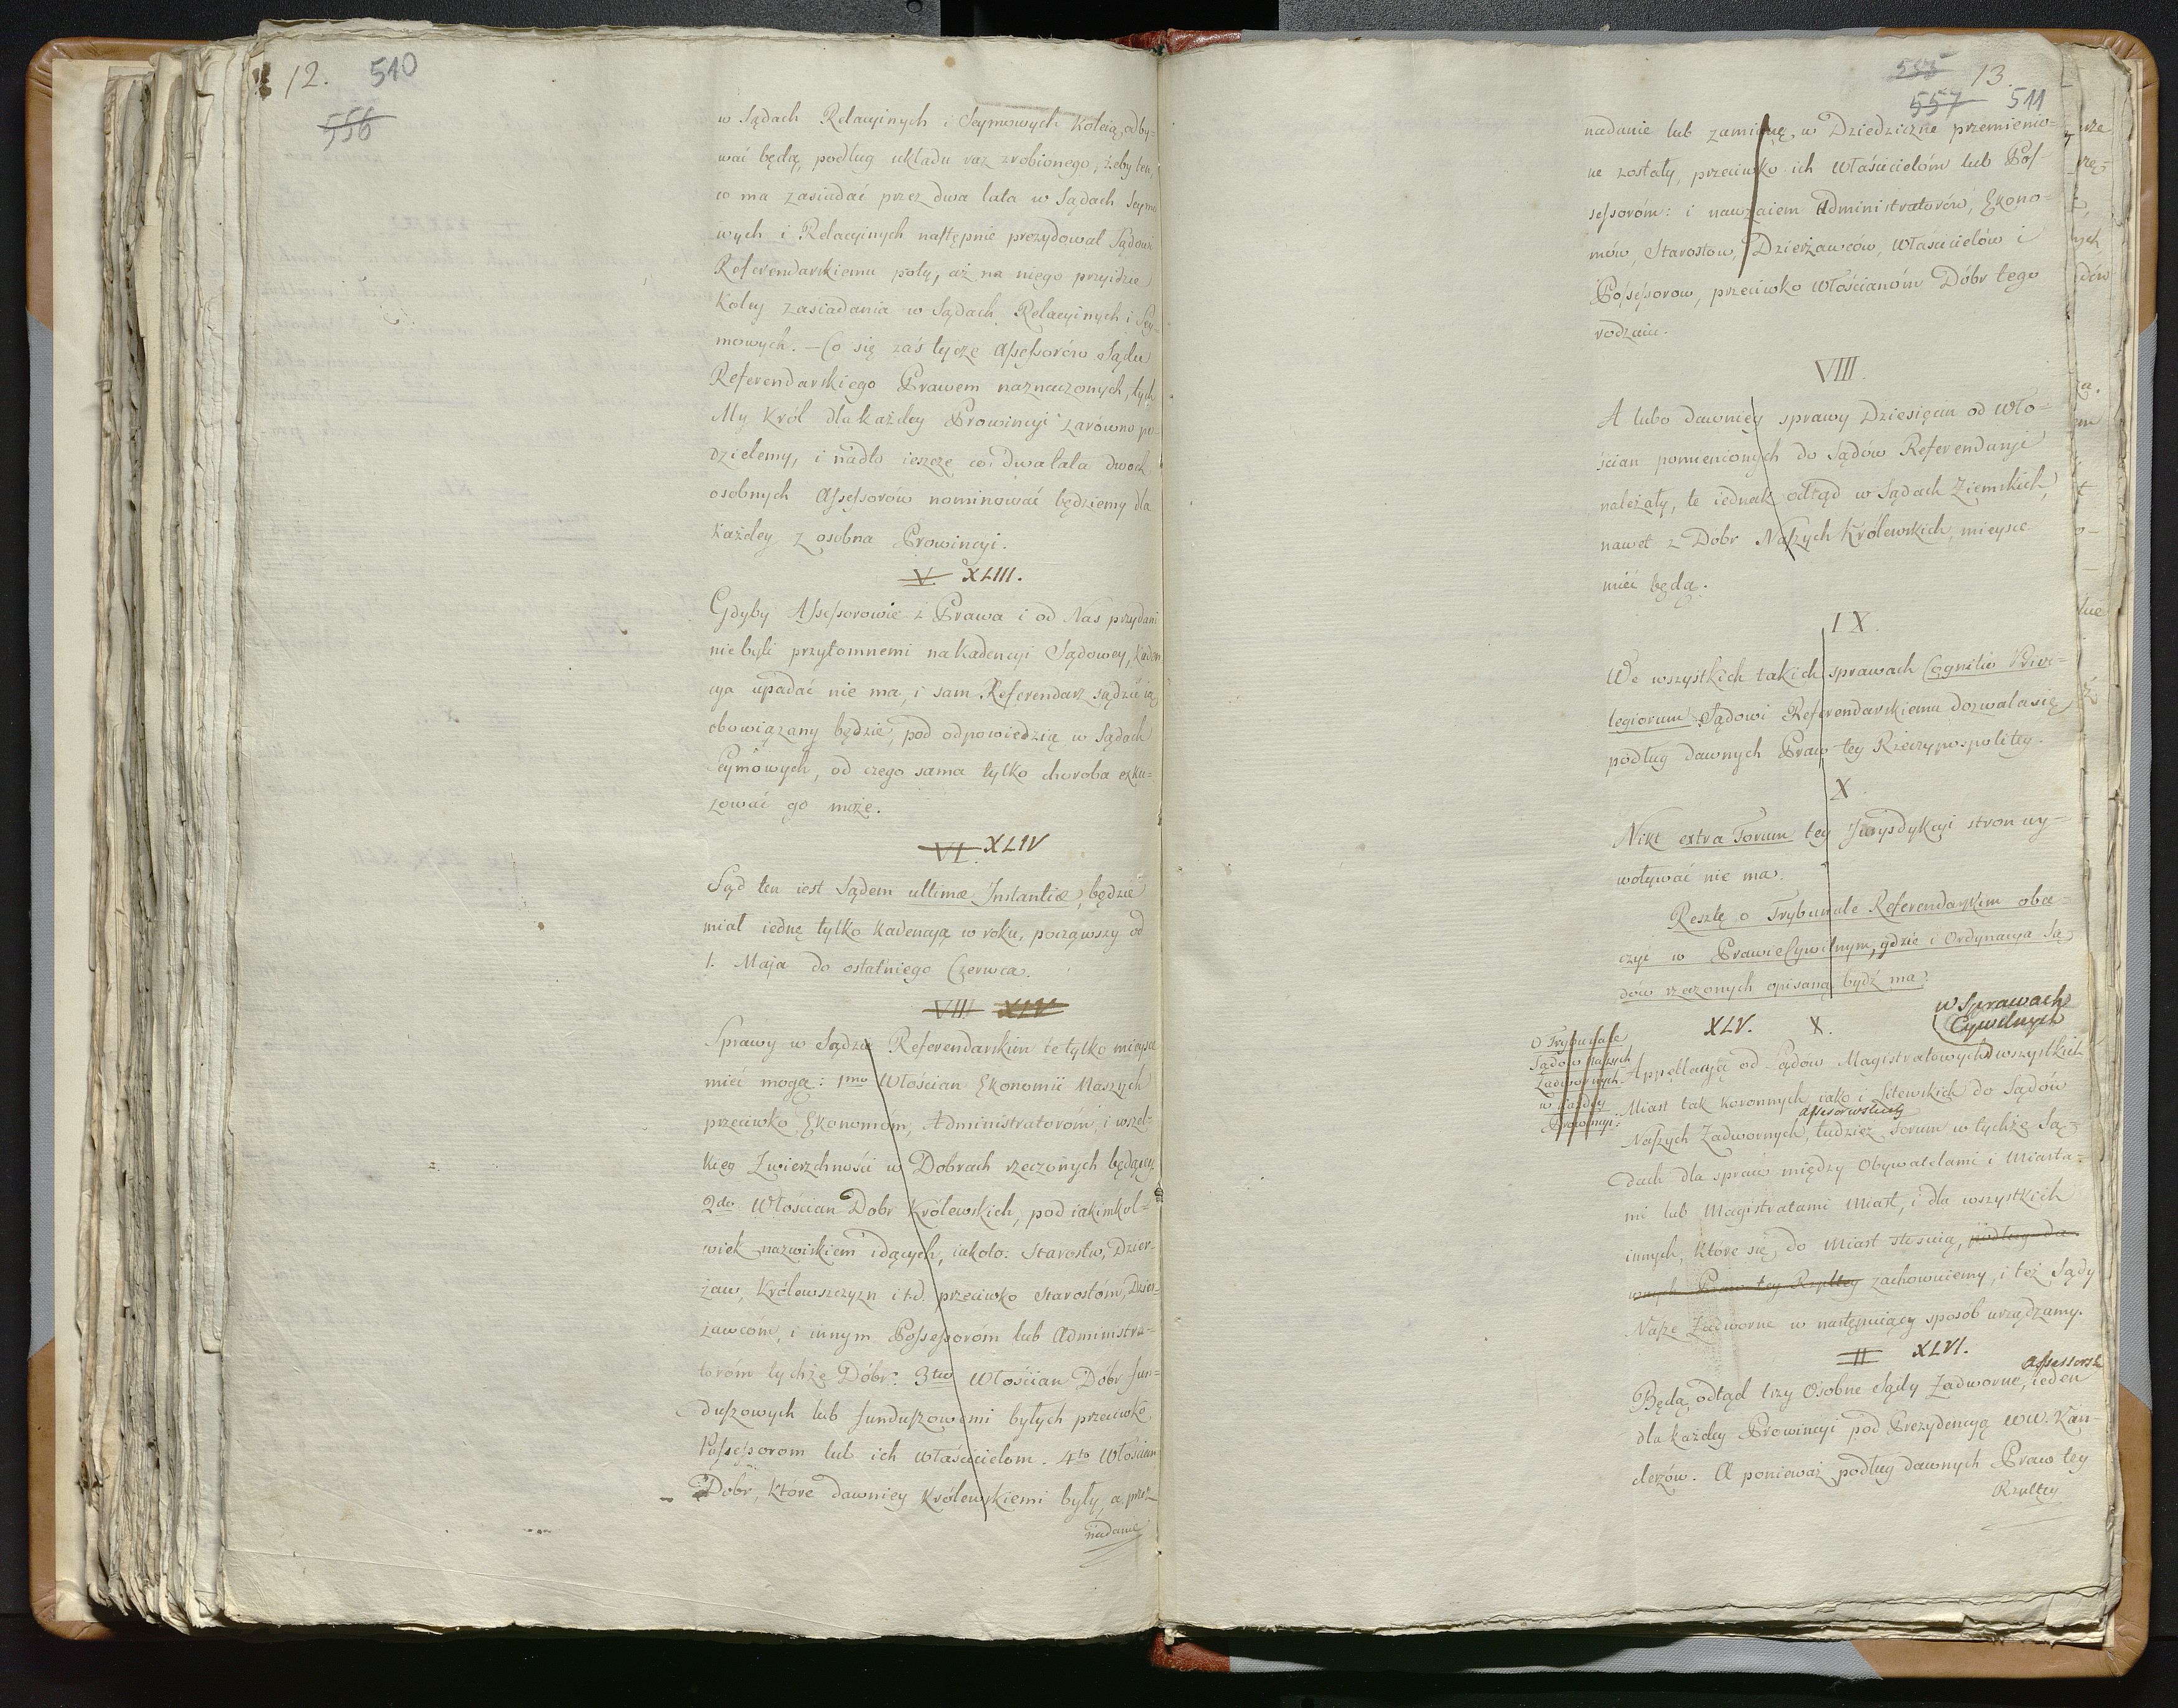 12. 510
556
w Sądach Relacyinych i Seymowych koleią odby-
wać będą, podług układu raz zrobionego, żeby ten,
co ma zasiadać przez dwa lata w Sądach Seymo
wych i Relacyinych następnie prezydował Sądowi
Referendarskiemu poty, aż na niego przyidzie
koley zasiadania w Sądach Relacyinych i Sey-
mowych. — Co się zaś tycze Assessorów Sądu
Referendarskiego Prawem naznaczonych, tych
My Król dla każdey Prowincyi zarówno po-
dzielemy, i nadto ieszcze co dwa lata dwoch
osobnych Assessorów nominować będziemy dla
każdey z osobna Prowincyi.
V. XLIII.
Gdyby Assessorowie z Prawa i od Nas przydani
nie byli przytomnemi na kadencyi Sądowey, kaden
cya upadać nie ma, i sam Referendarz sądzić ią
obowiązany będzie, pod odpowiedzią w Sądach
Seymowych, od czego sama tylko choroba exku-
zować go może.
VI. XLIV
Sąd ten iest Sądem ultimæ Instantiæ, będzie
miał iednę tylko kadencyą w roku, począwszy od
1. Maja do ostatniego Czerwca.
VII. XLV
Sprawy w Sądzie Referendarskim te tylko mieysce
mieć mogą: 1mo Włościan Ekonomii Naszych
przeciwko Ekonomom, Administratoróm, i wszel-
kiey Zwierzchności w Dobrach rzeczonych będącey
2do Włościan Dobr Królewskich, pod iakimkol-
wiek nazwiskiem idących, iakoto: Starostw, Dzier-
żaw, Królewszczyzn i t.d. przeciwko Starostóm, Dzier-
żawcóm, i innym Possessoróm lub Administra-
toróm tychże Dóbr: 3tio Włościan Dóbr fun-
duszowych lub funduszowemi byłych przeciwko
Possessorom lub ich właścicielom. 4to Włościan
Dobr, które dawniey Królewskiemi były, a przez
nadanie
13.
557 511
nadanie lub zamianę, w Dziedziczne przemienio-
ne zostały, przeciwko ich Właścicielóm lub Pos-
sessoróm: i nawzaiem Administratorów, Ekono-
mów, Starostów, Dzierżawców, Właścicielów i
Possessorow, przeciwko Włościanóm Dóbr tego
rodzaiu.
VIII.
A lubo dawniey sprawy Dziesięcin od Wło-
ścian pomienionych do Sądów Referendaryi
należały, te iednak odtąd w Sądach Ziemskich,
nawet z Dobr Naszych Królewskich, mieysce
mieć będą.
IX.
We wszystkich takich sprawach Cognitio Privi-
legiorum Sądowi Referendarskiemu dozwala się
podług dawnych Praw tey Rzeczypospolitey.
X.
Nikt extra Forum tey Jurysdykcyi stron wy-
woływać nie ma.
Resztę o Trybunale Referendarskim oba-
czyć w Prawie Cywilnym, gdzie i Ordynacya Są-
dów rzeczonych opisaną bydź ma.
w Sprawach
Cywilnych
XLV. X.
O Trybunale
Sądow Naszych
Zadwornych
w każdey
Prowincyi.
Appellacyą od Sądow Magistratowych wszystkich
Miast tak koronnych iako i Litewskich do Sądów
assesorwskich
Naszych Zadwornych, tudzież forum w tychże Są-
dach dla spraw między Obywatelami i Miasta-
mi lub Magistratami Miast, i dla wszystkich
innych, które się do Miast stosuią, podług da-
wnych Praw tey Rzpltey zachowuiemy, i też Sądy
Nasze Zadworne w następuiący sposób urządzamy.
II XLVI.
assessorsk
Będą odtąd trzy Osobne Sądy Zadworne, ieden
dla każdey Prowincyi pod Prezydencyą WW. Kan-
clerzów. A ponieważ podług dawnych Praw tey
Rzpltey